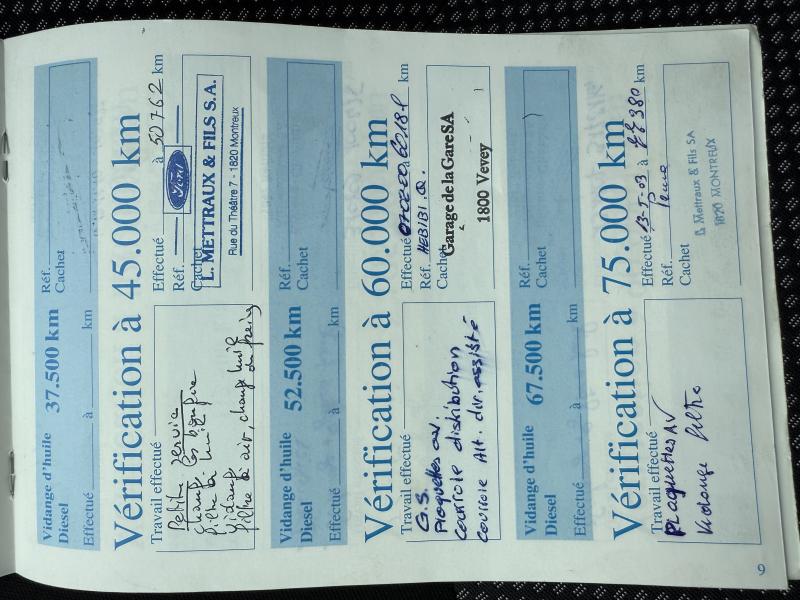 Vidange d'huile 37.500 km
Diesel
Réf.
Cachet
Effectué à km
Vérification à 45.000 km
Travail effectué
petit service
change les bougies
filtre à huile
vidange
filtre à air, change huile
du freins
Effectué à 50762 km
Ford
Réf.
Cachet
L. METTRAUX & FILS S.A.
Rue du Théâtre 7 - 1820 Montreux
Vidange d'huile 52.500 km
Diesel
Réf.
Cachet
Effectué à km
Vérification à 60.000 km
Travail effectué
G.S.
Plaquettes av.
courroie distribution
courroie Alt. dir. assisté
Effectué à km
Réf. HEBIBI.Q.
Cachet
Garage de la Gare SA
1800 Vevey
Vidange d'huile 67.500 km
Diesel
Réf.
Cachet
Effectué à km
Vérification à 75.000 km
Travail effectué
plaquettes AV
Vidange filtre
Effectué 13-5-03 à 77380 km
Réf.
Cachet
B. Mettraux & Fils SA
1820 MONTREUX
9